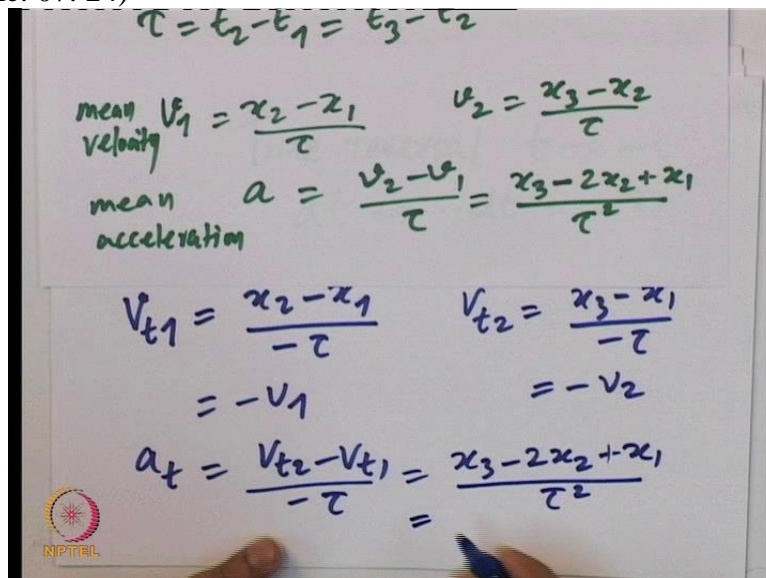 τ = t2 - t1 = t3 - t2
mean velocity V1 = x2 - x1 / τ    v2 = x3 - x2 / τ
mean acceleration a = v2 - v1 / τ = x3 - 2x2 + x1 / τ²
Vt1 = x2 - x1 / -τ    Vt2 = x3 - x1 / -τ
= -v1    = -v2
at = Vt2 - Vt1 / -τ = x3 - 2x2 + x1 / τ²
=
NPTEL